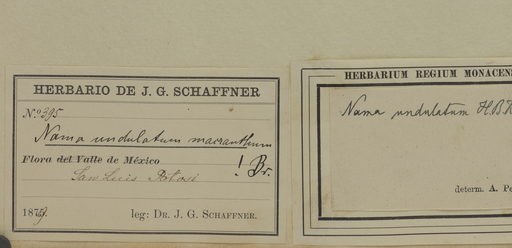 HERBARIO DE J. G. SCHAFFNER
No. 395
Nama undulatum macranthum
Flora del Valle de México ! Br.
San Luis Potosi
1879. leg: Dr. J. G. Schaffner.
HERBARIUM REGIUM MONACENS
Nama undulatum HBK
determ. A. Pe